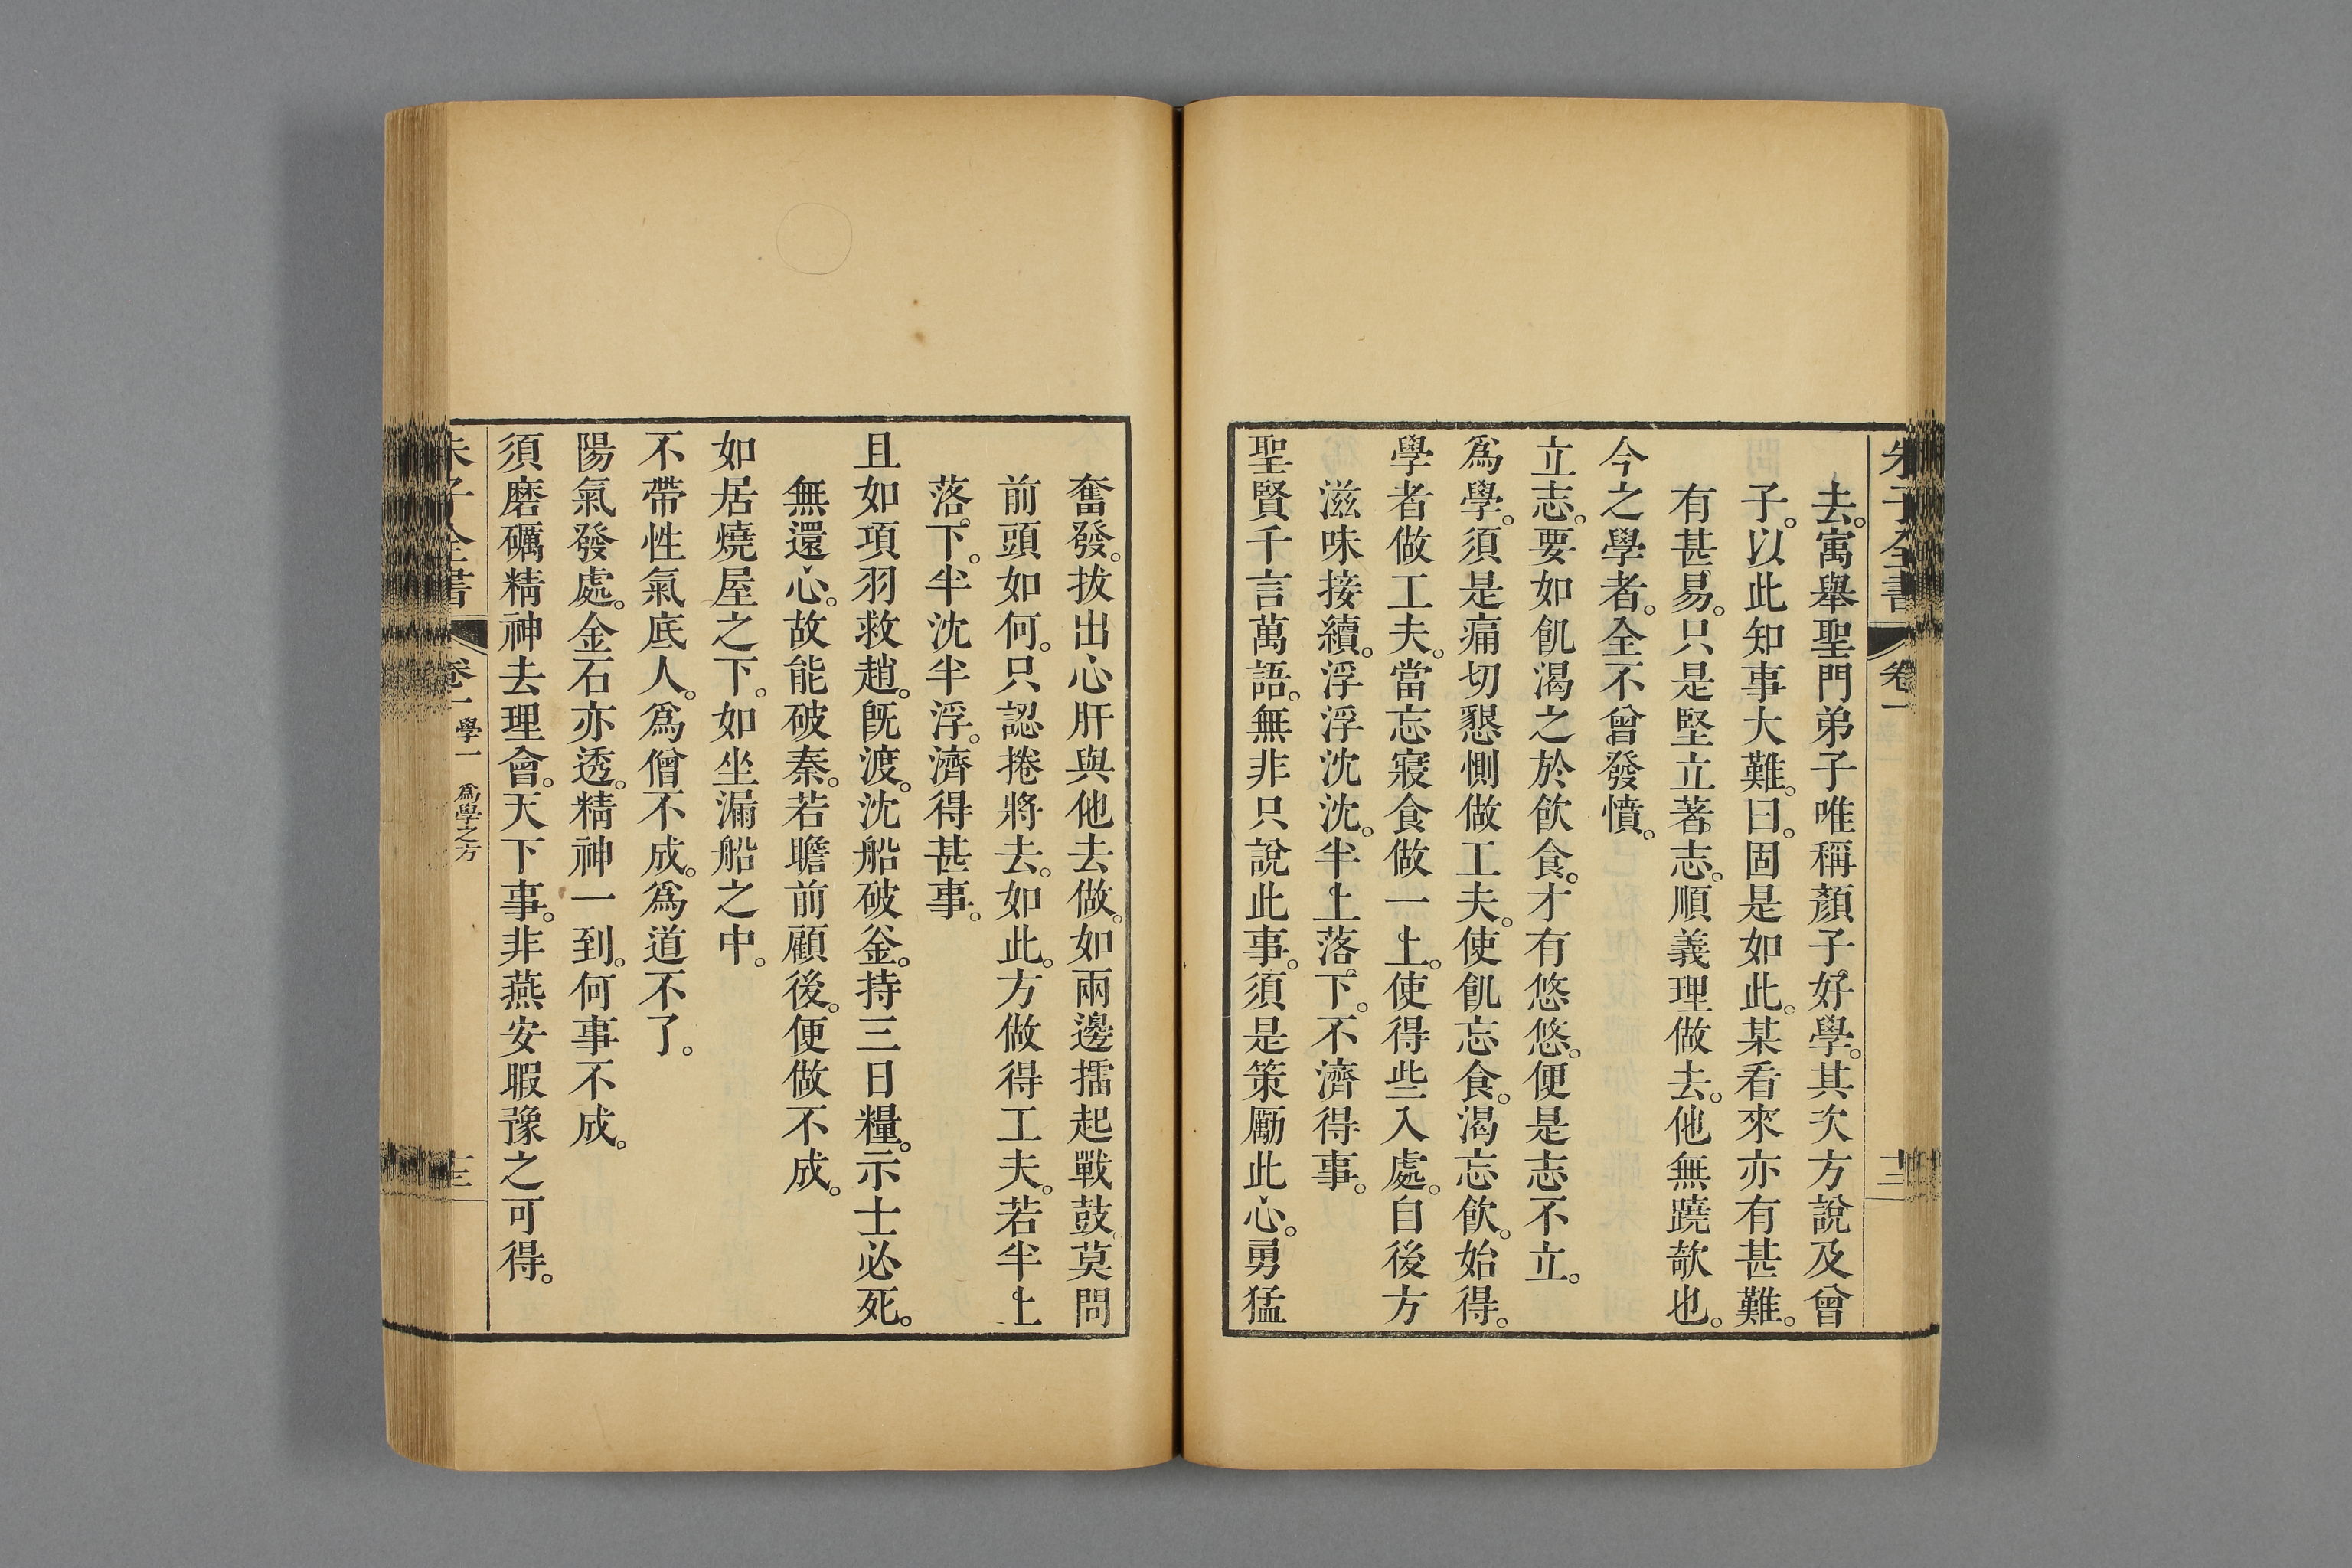 朱子全書 卷一 十二
去。寓舉聖門弟子唯稱顏子。好學。其次方說及曾
子。以此知事大難。曰。固是如此。某看來亦有甚難。
有甚易。只是堅立著志。順義理做去。他無蹺欹也。
今之學者。全不曾發憤。
立志。要如飢渴之於飲食。才有悠悠。便是志不立。
爲學。須是痛切懇惻做工夫。使飢忘食。渴忘飲。始得。
學者做工夫。當忘寢食做一上。使得些入處。自後方
滋味接續。浮浮沈沈。半上落下。不濟得事。
聖賢千言萬語。無非只說此事。須是策勵此心。勇猛
奮發。拔出心肝與他去做。如兩邊擂起戰鼓。莫問
前頭如何。只認捲將去。如此。方做得工夫。若半上
落下。半沈半浮。濟得甚事。
且如項羽救趙。旣渡。沈船破釜。持三日糧。示士必死。
無還心。故能破秦。若瞻前顧後。便做不成。
如居燒屋之下。如坐漏船之中。
不帶性氣底人。爲僧不成。爲道不了。
陽氣發處。金石亦透。精神一到。何事不成。
須磨礪精神去理會。天下事。非燕安暇豫之可得。
朱子全書 卷一 學一 爲學之方